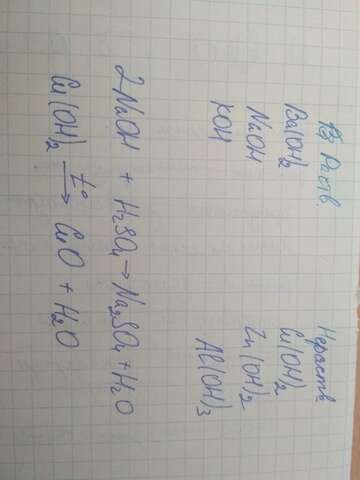 Раств. Нераств
Ba(OH)₂ Cu(OH)₂
NaOH Zn(OH)₂
KOH Al(OH)₃
2NaOH + H₂SO₄ → Na₂SO₄ + H₂O
Cu(OH)₂ —t°→ CuO + H₂O